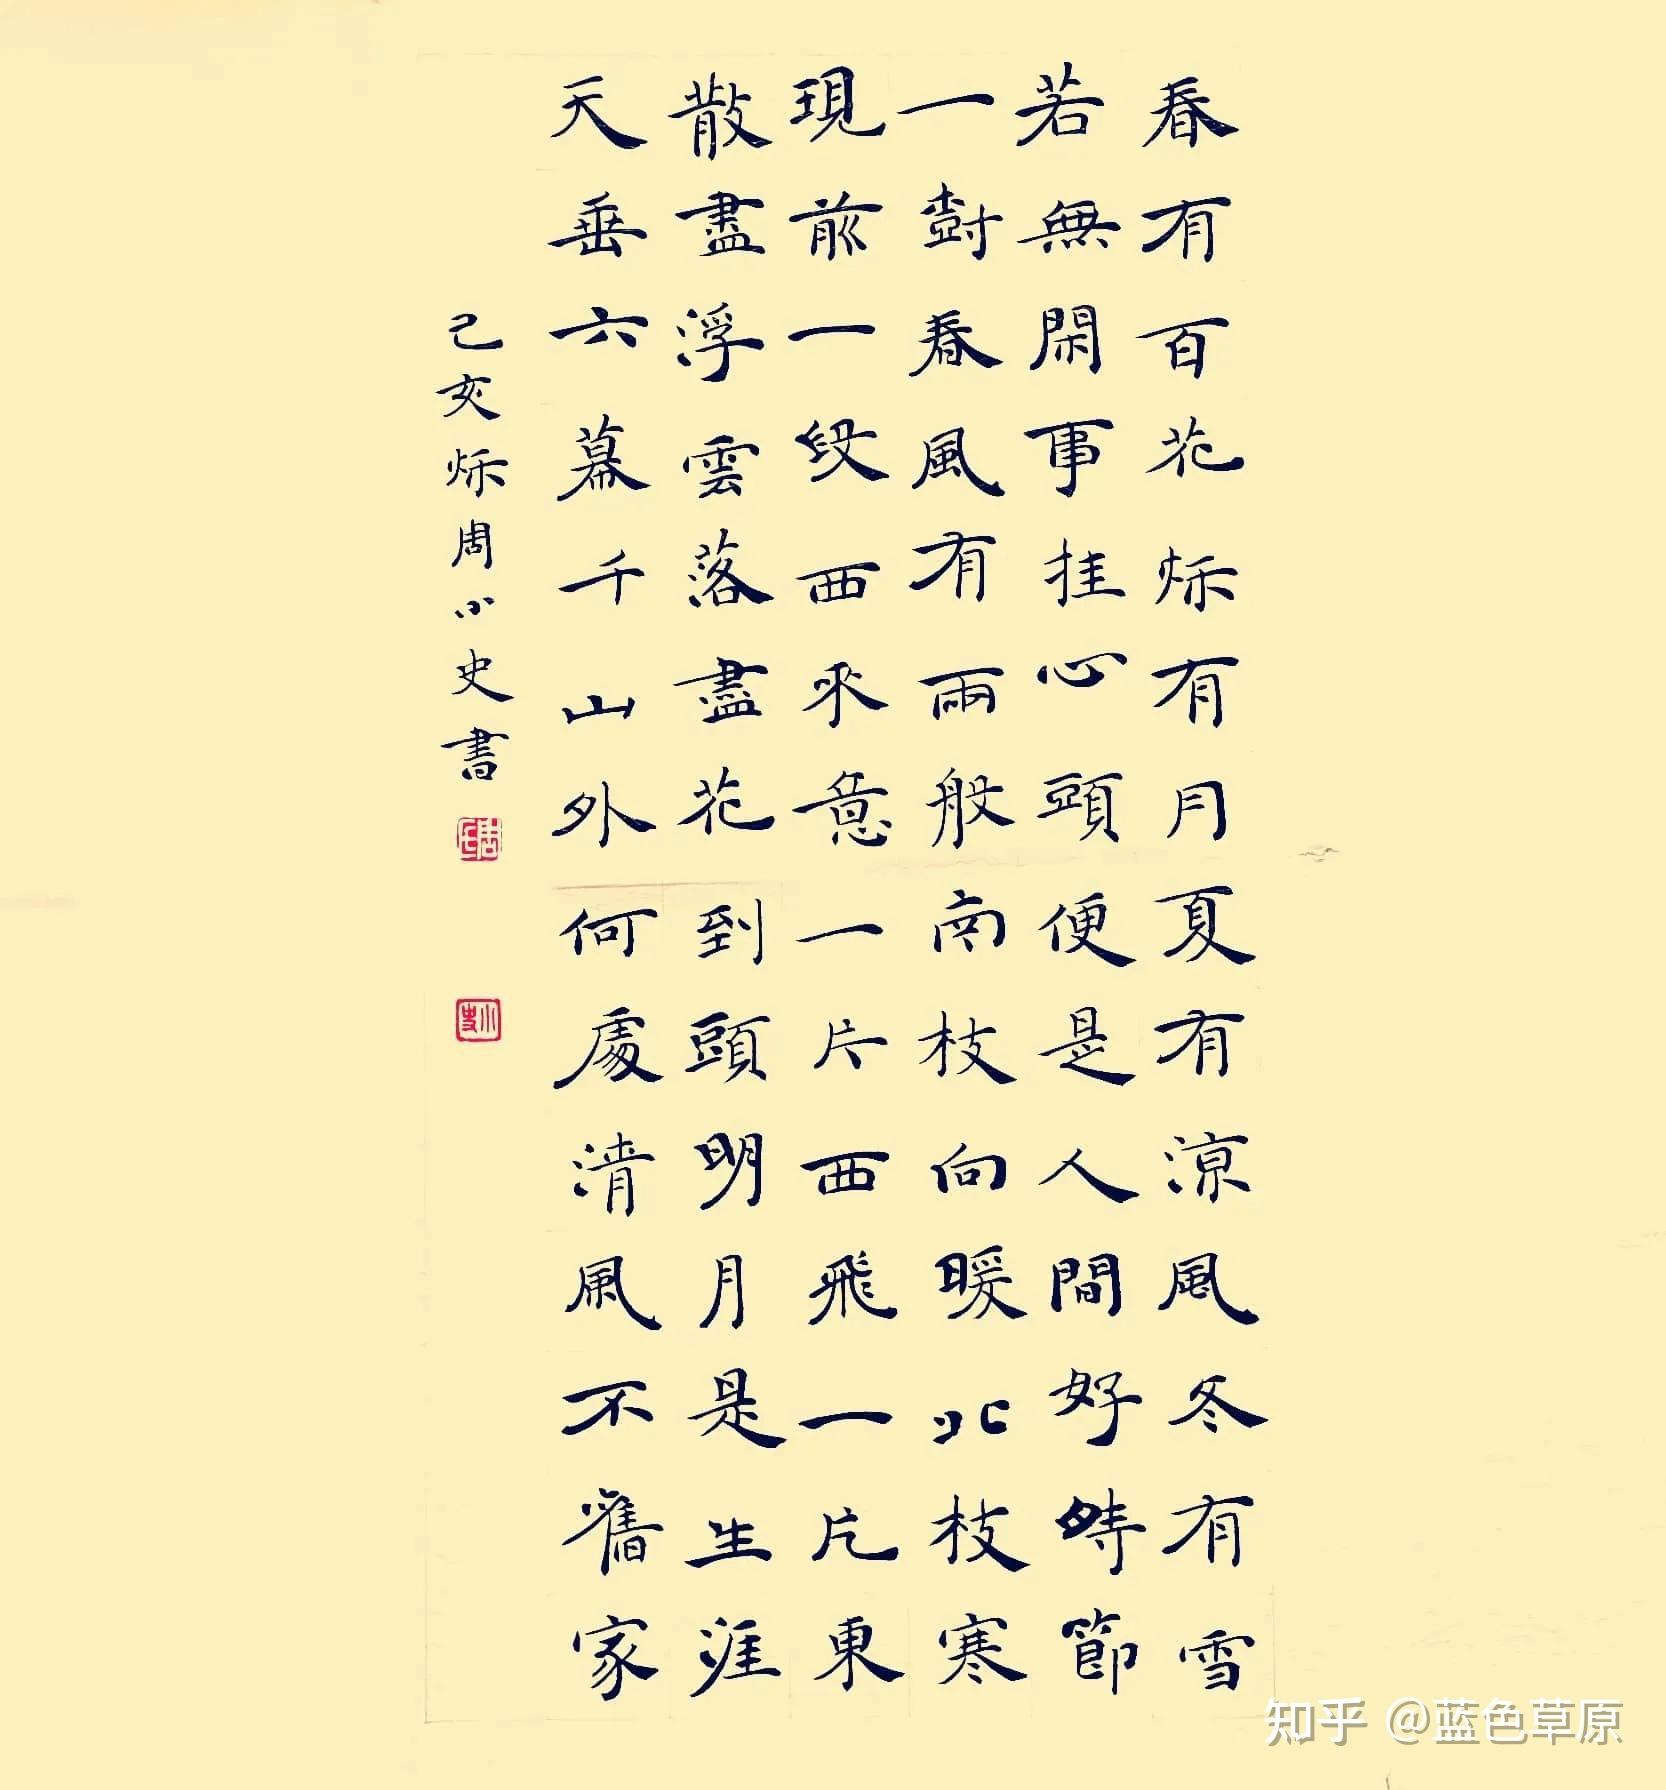 春有百花秌有月夏有涼風冬有雪
若無閑事挂心頭便是人間好時節
一對春風有兩般南枝向暖北枝寒
現前一段西來意一片西飛一片東
散盡浮雲落盡花到頭明月是生涯
天垂六幕千山外何處清風不舊家
己亥秌周小史書
周氏
小史
知乎 @蓝色草原